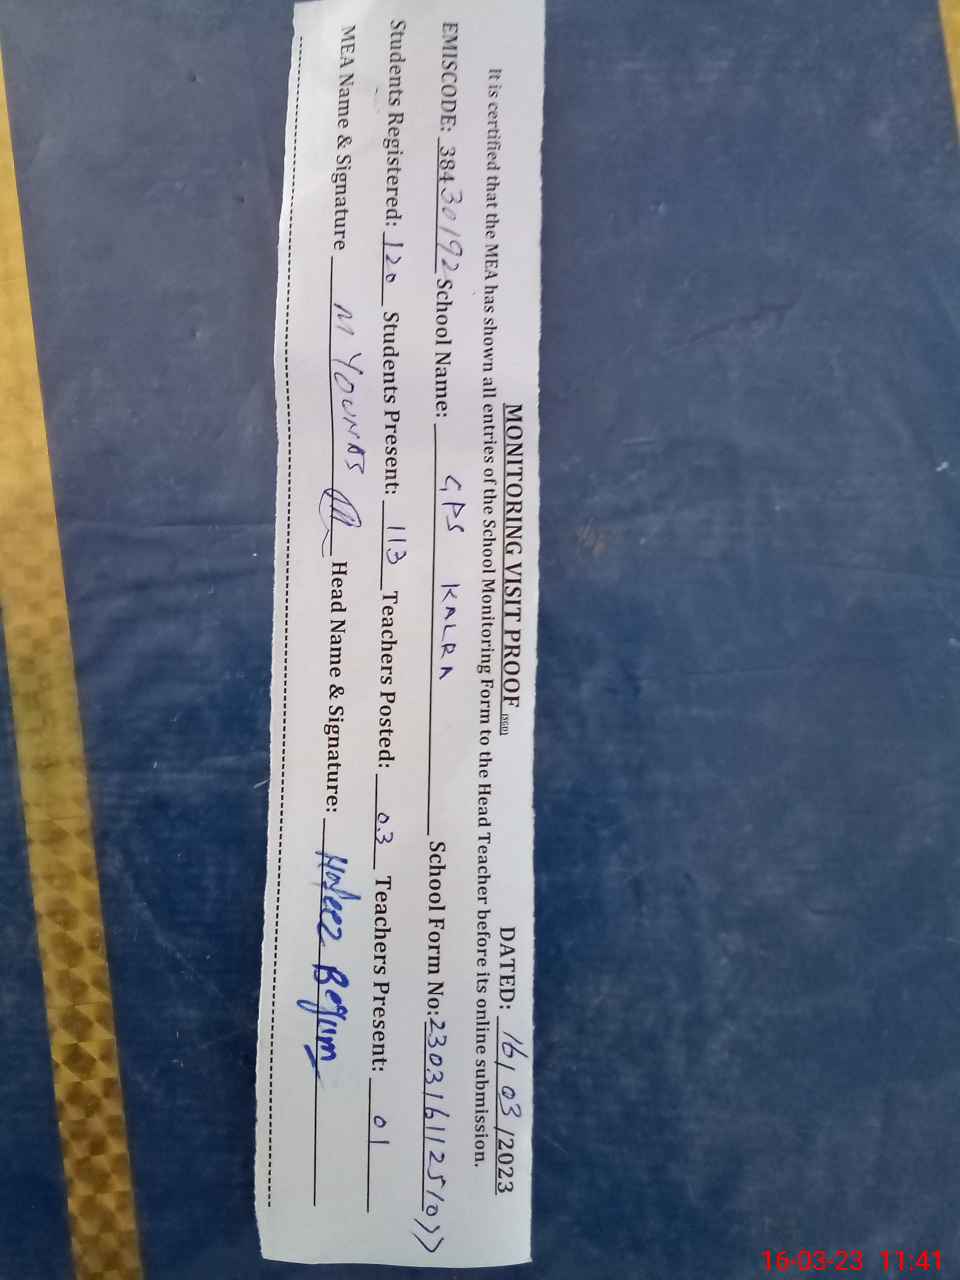 MONITORING VISIT PROOF DATED: 16/03/2023
It is certified that the MEA has shown all entries of the School Monitoring Form to the Head Teacher before its online submission.
EMISCODE: 38430192 School Name: GPS KALRA School Form No: 230316112510
Students Registered: 120 Students Present: 113 Teachers Posted: 03 Teachers Present: 01
MEA Name & Signature M YOUNAS Head Name & Signature: Hafeez Begum
16-03-23 11:41